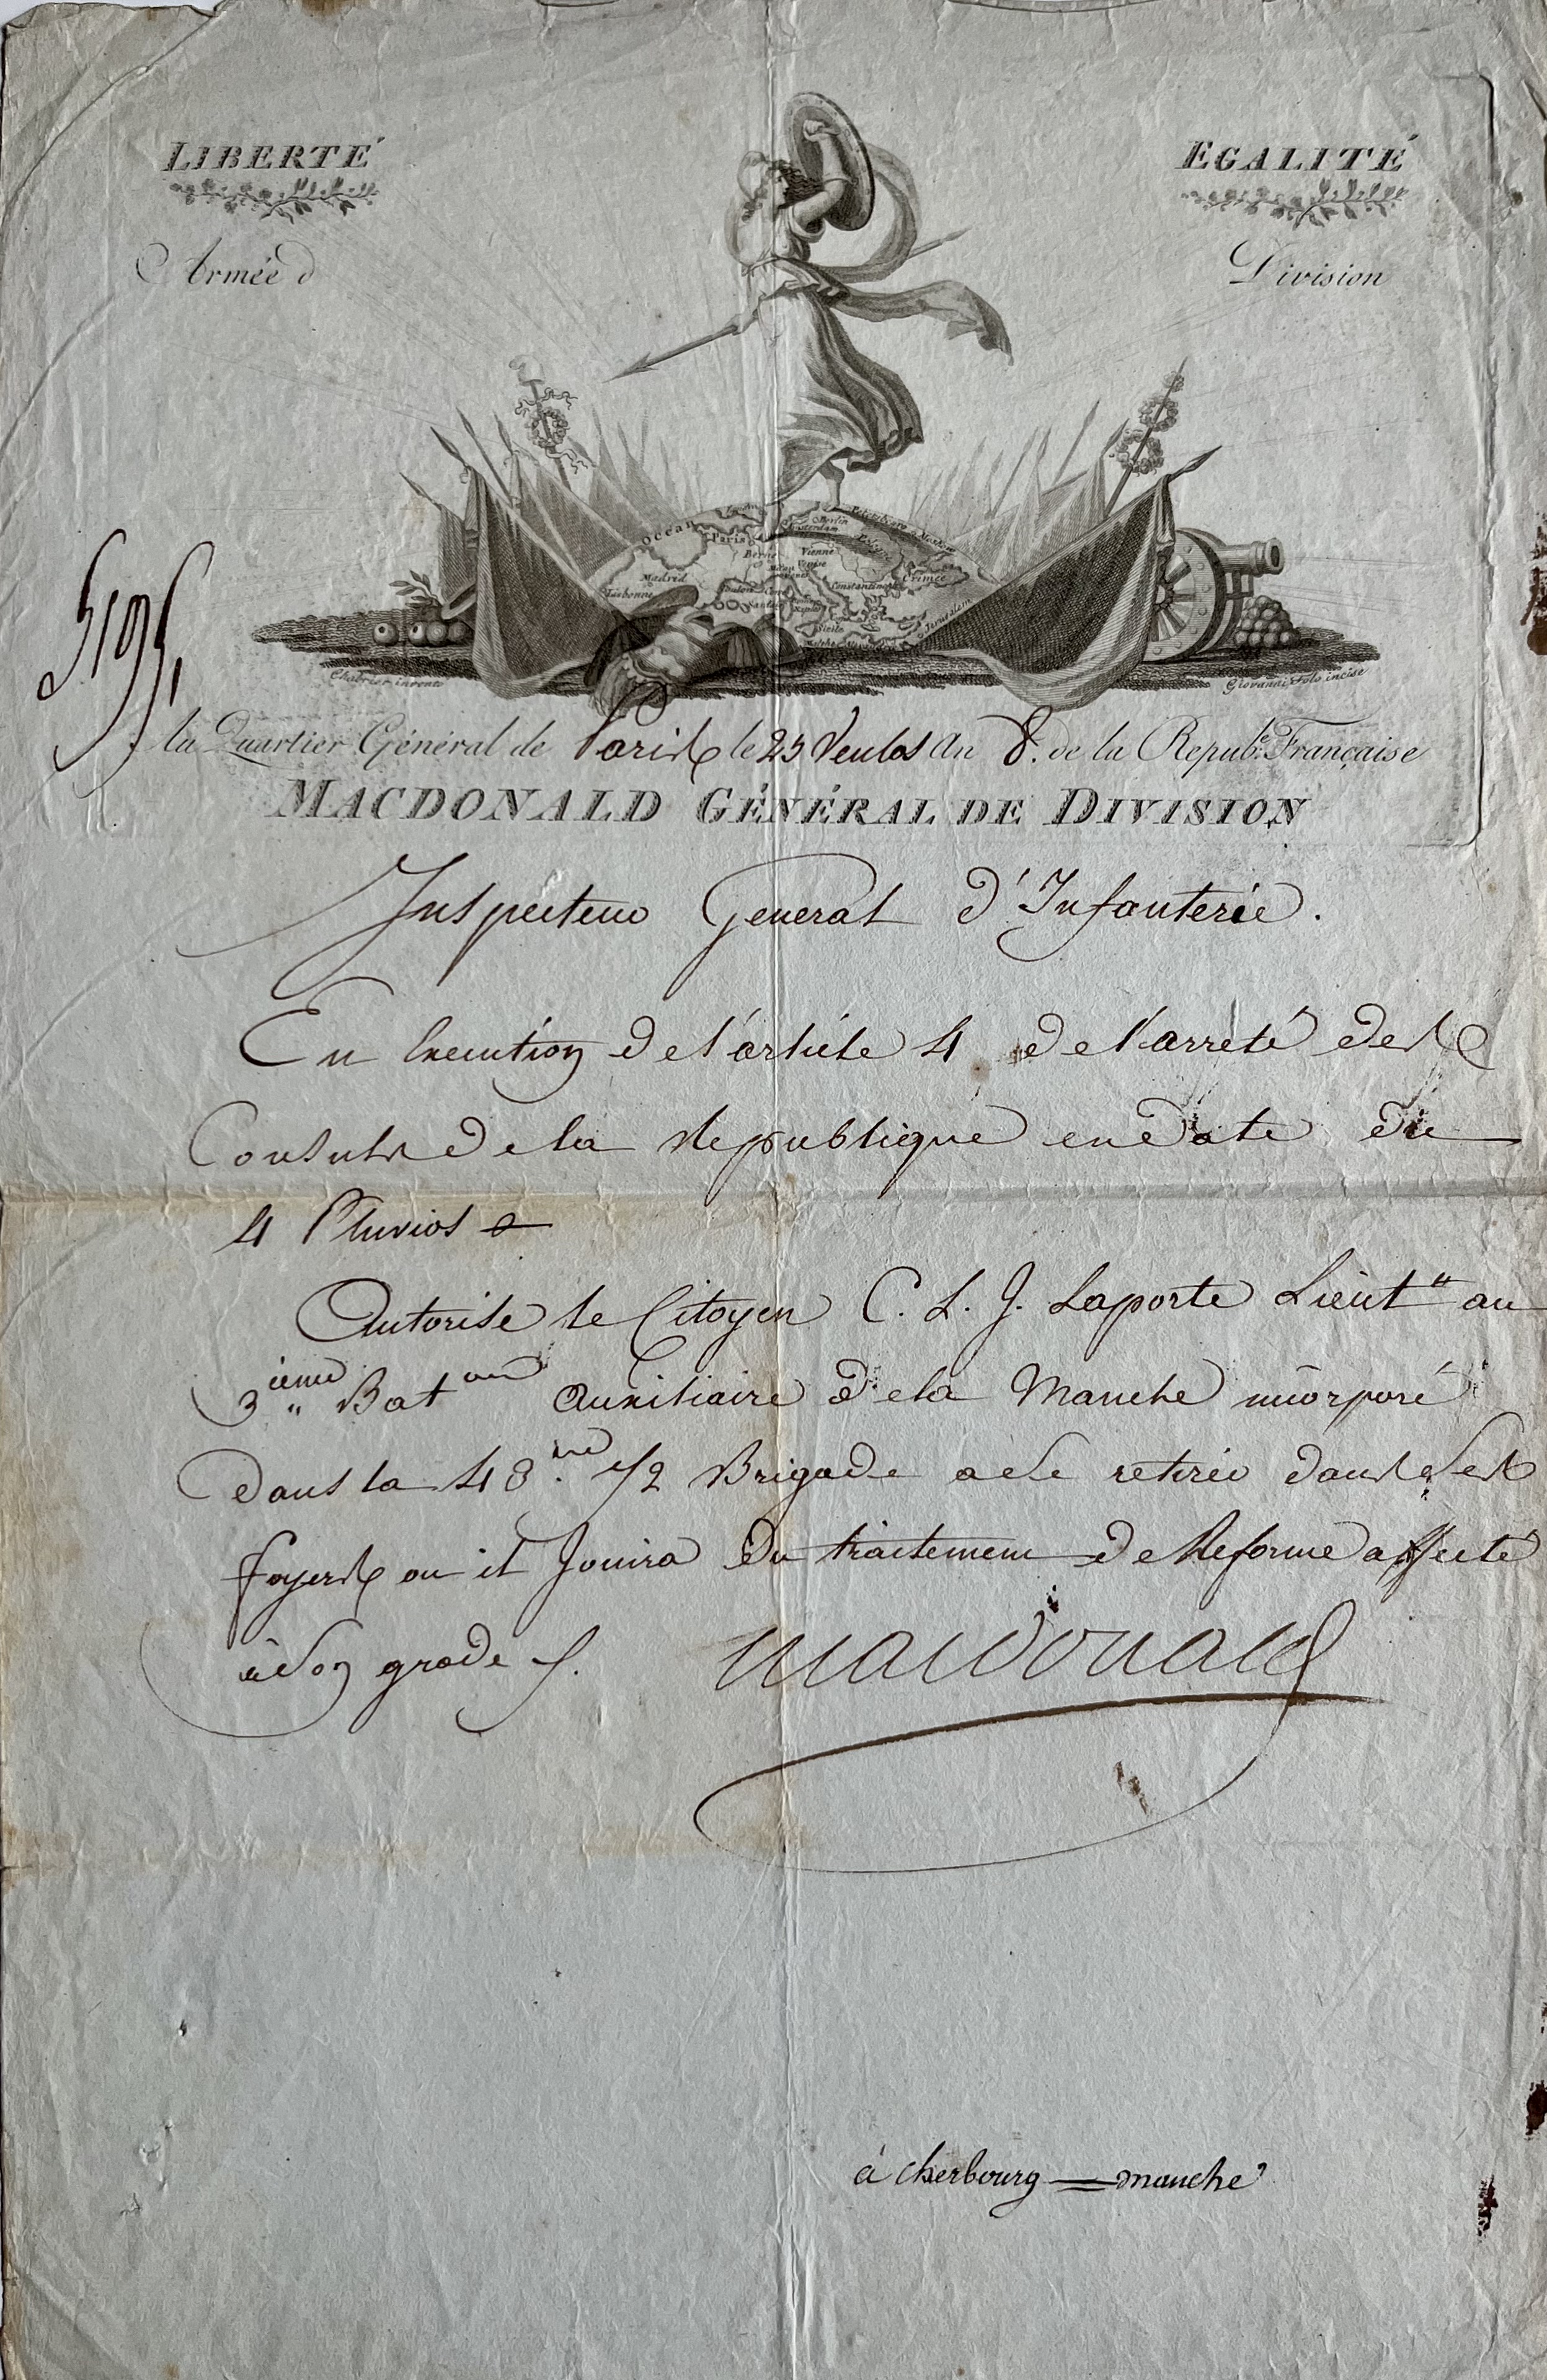 LIBERTÉ
EGALITÉ
Armée d
Division
Océan
Paris
Berlin
Amsterdam
Vienne
Madrid
Lisbonne
Constantinople
Crimée
Jerusalem
Giovanni Folo incise
5195
Au Quartier Général de Paris le 25 Ventos An 8. de la Repub.e Française
MACDONALD GÉNÉRAL DE DIVISION
Inspecteur General d'Infanterie.
En Execution de l'article 4 de l'arrèté des
Consuls de la Republique en date du
4 Pluviose
Autorise le Citoyen C. L. J. Laporte Lieut.t au
3ieme Baton Auxiliaire de la Manche incorporé
dans la 43.me 1/2 Brigade a se retirer dans ses
foyers ou il Jouira du traitement de Reforme affecté
à son grade /.
Macdonald
à cherbourg = manche